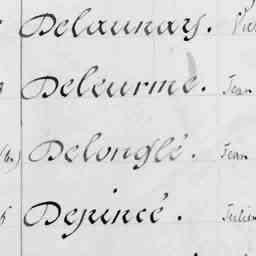 Delaunay. Vic
Deleurme. Jean
Delonglé. Jean
Depincé. Julien